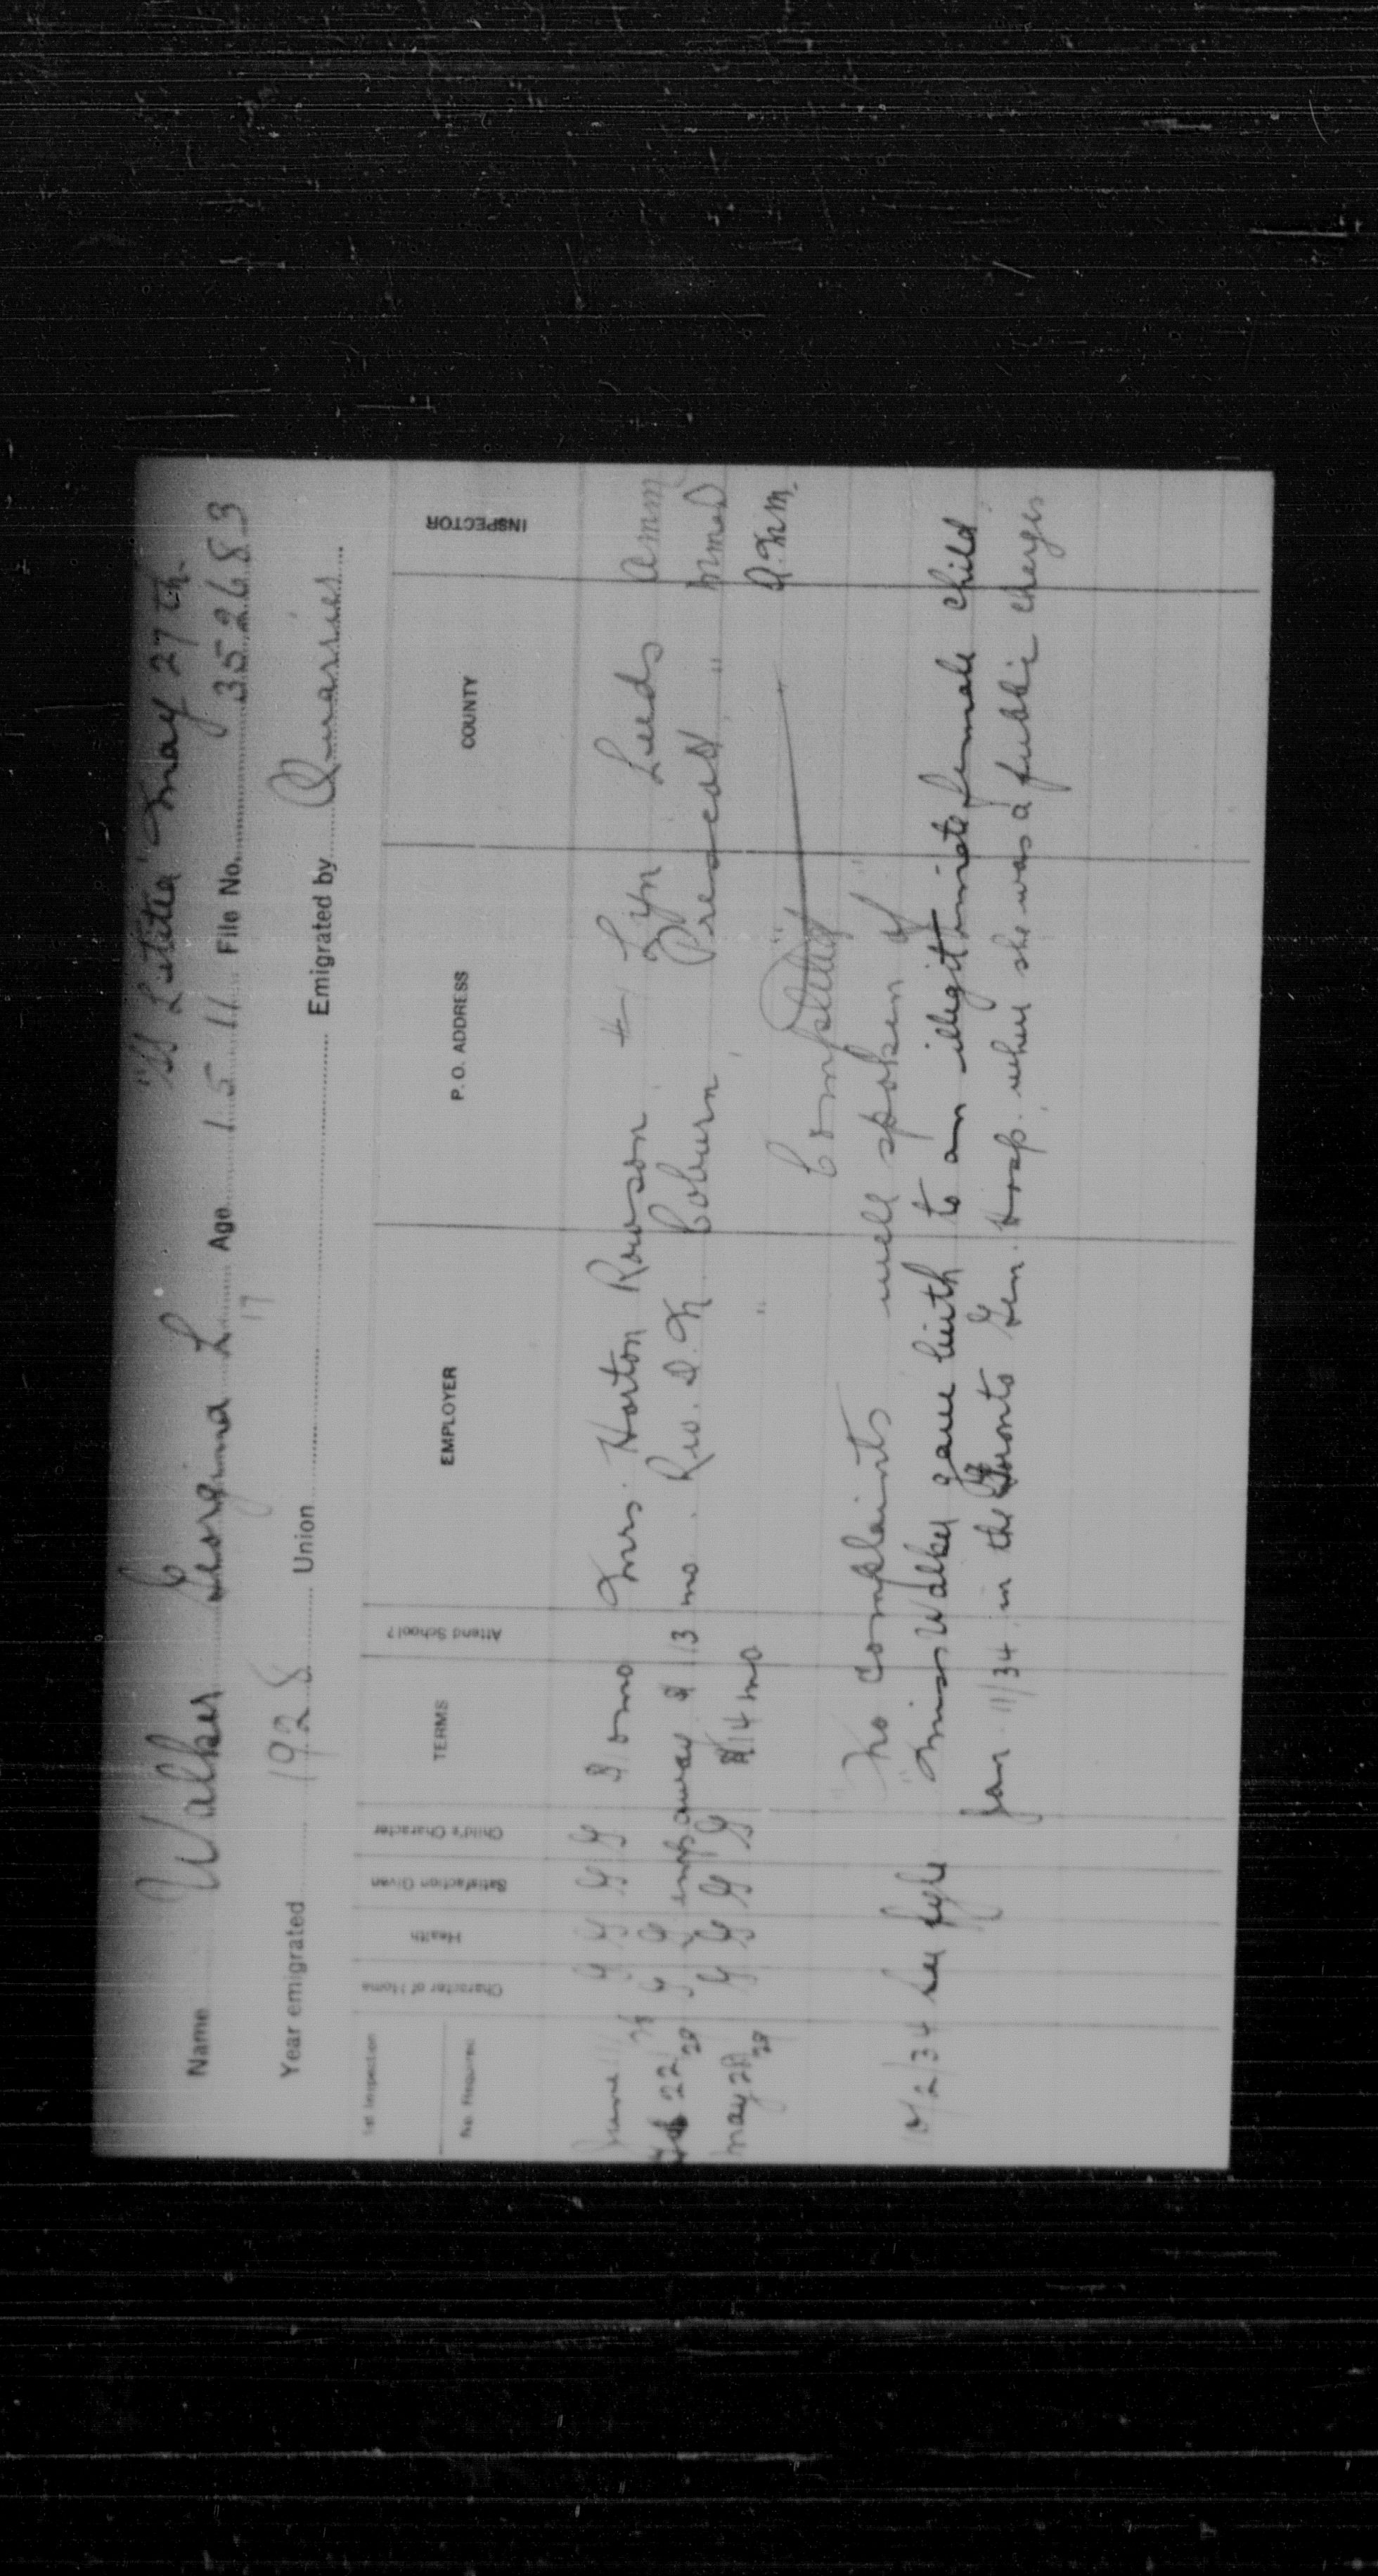 "S.S Letitia" May 27th.
Name Walker Georgina L Age 15 11 File No. 352683
17
Year emigrated 1928 Union Emigrated by Quarriers
1st Inspection No. Required Character of Home Health Satisfaction Given Child's Character TERMS Attend School? EMPLOYER P. O. ADDRESS COUNTY INSPECTOR
June 11/28 G G G G $10 mo Mrs. Horton Rowson Lyn Leeds AMM
Feb 22/29 G G G emp away $13 mo. Rev. D. N Coburn, Prescott " MMAD
May 28/29 G G G G $14 mo " " " A.K.M.
Completed
"No complaints well spoken of"
10/2/34 See fyle "Miss Walker gave birth to an illegitimate female child
Jan 11/34 in the Toronto Gen. Hosp. when she was a public charge"